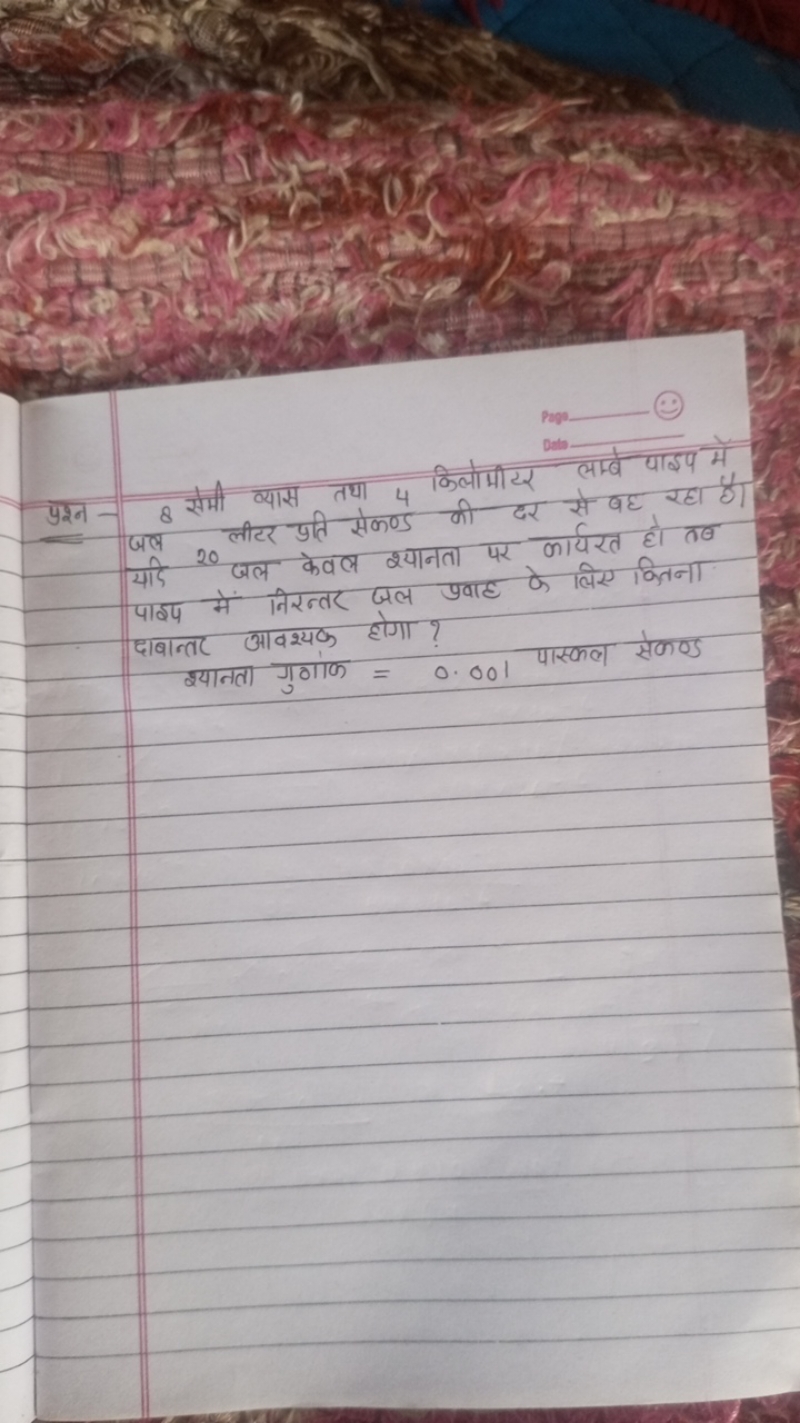 Page
Date
प्रश्न - 8 सेमी व्यास तथा 4 किलोमीटर लम्बे पाइप में
जल 20 लीटर प्रति सेकण्ड की दर से बह रहा है।
यदि जल केवल श्यानता पर कार्यरत हो तब
पाइप में निरन्तर जल प्रवाह के लिए कितना
दाबान्तर आवश्यक होगा ?
श्यानता गुणांक = 0.001 पास्कल सेकण्ड